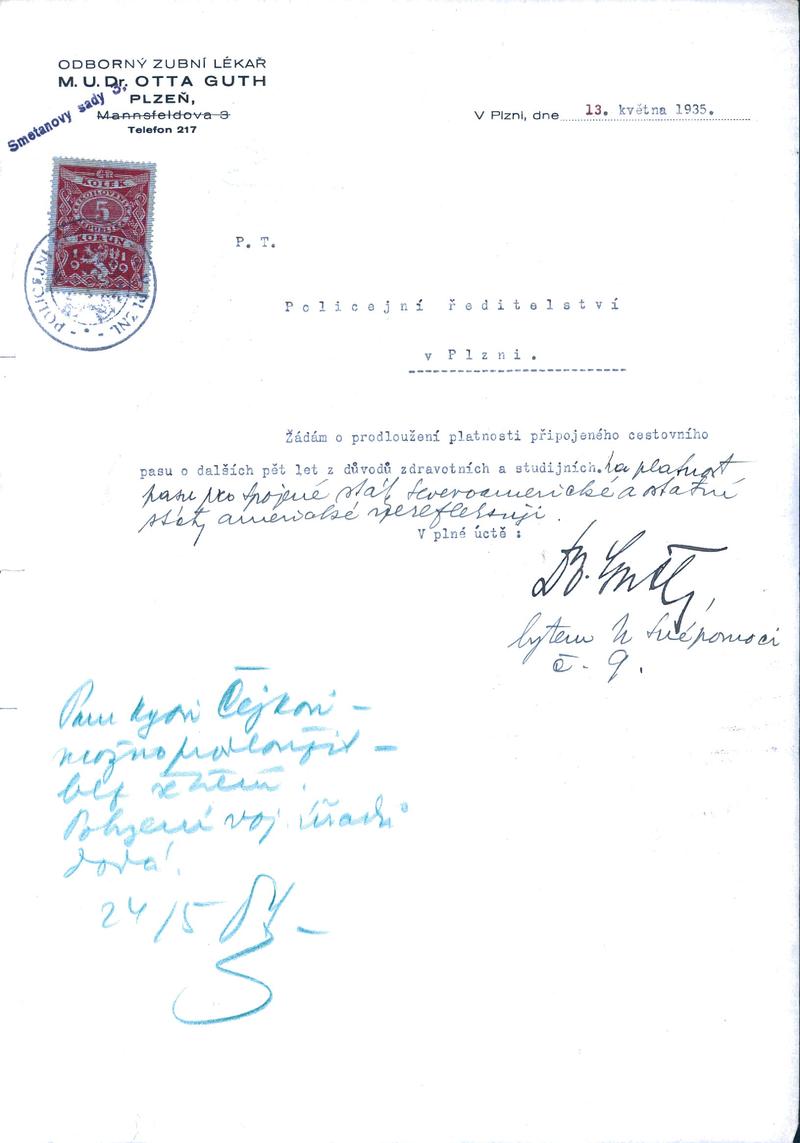 ODBORNÝ ZUBNÍ LÉKAŘ
M. U. Dr. OTTA GUTH
PLZEŇ,
Mannsfeldova 3
Smetanovy sady 3.
Telefon 217
V Plzni, dne 13. května 1935.
KOLEK
5
KORUN
POLICEJNÍ V PLZNI
P. T.
Policejní ředitelství
v Plzni.
Žádám o prodloužení platnosti připojeného cestovního
pasu o dalších pět let z důvodů zdravotních a studijních. Na platnost
pasu pro Spojené státy Severoamerické a ostatní
státy americké nereflektuji.
V plné úctě :
Dr. Guth,
bytem U Svépomoci
č. 9.
Čejkovi –
možno prodloužit –
bez
voj. úřadu
dodá.
24/5